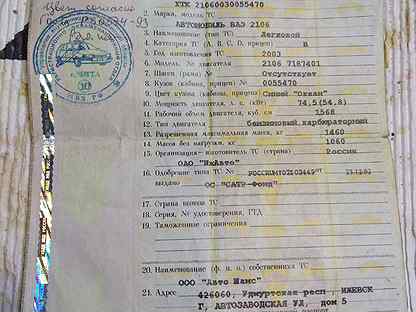 Цвет согласно
ХТК 21060030055470
2. Марка, модель ТС
АВТОМОБИЛЬ ВАЗ 2106
3. Наименование (тип ТС) Легковой
4. Категория ТС (А, В, С, D, прицеп) В
5. Год изготовления ТС 2003
6. Модель, № двигателя 2106 7187401
7. Шасси (рама) № Отсутствует
8. Кузов (кабина, прицеп) № 0055470
9. Цвет кузова (кабины, прицепа) Синий "Океан"
10. Мощность двигателя, л. с. (кВт) 74,5(54,8)
11. Рабочий объем двигателя, куб. см 1568
12. Тип двигателя бензиновый, карбюраторный
13. Разрешенная максимальная масса, кг 1460
14. Масса без нагрузки, кг 1060
15. Организация-изготовитель ТС (страна) Россия
ОАО "ИжАвто"
16. Одобрение типа ТС №
выдано ОС "САТР-Фонд"
17. Страна вывоза ТС
18. Серия, № удостоверения, ГТД
19. Таможенные ограничения
20. Наименование (ф. и. о.) собственника ТС
ООО "Авто Шанс"
21. Адрес 426060, Удмуртская респ, ИЖЕВСК
Г, АВТОЗАВОДСКАЯ УЛ, дом 5
г. ЧИТА
МВД РФ